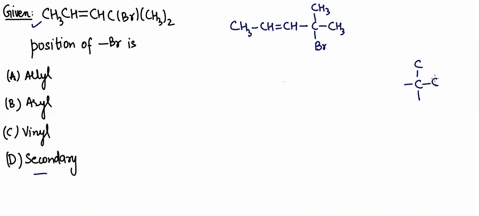 Given: CH₃CH=CHC(Br)(CH₃)₂
position of –Br is
(A) Allyl
(B) Aryl
(C) Vinyl
(D) Secondary
CH₃
CH₃–CH=CH–C–CH₃
Br
C
–C–C